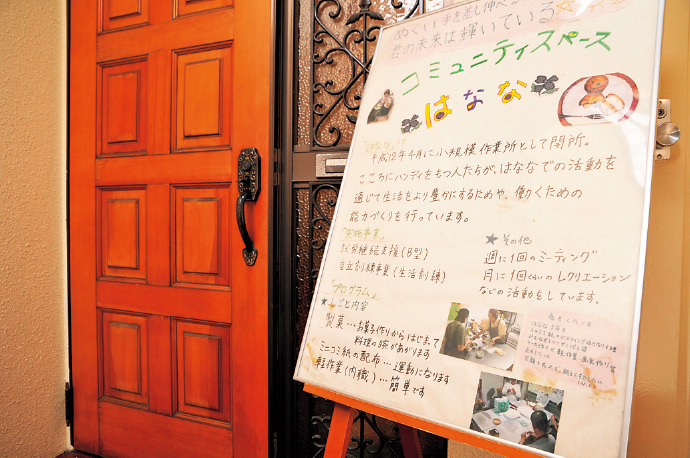 ぬくい手を差し伸べ
君の未来は輝いている
コミュニティスペース
はなな
「はなな」!?
平成12年4月に小規模作業所として開所。
こころにハンディをもつ人たちが、はななでの活動を
通じて生活をより豊かにするためや、働くための
能力づくりを行っています。
「実施事業」
就労継続支援(B型)
自立訓練事業(生活訓練)
「プログラム」
★しごと内容
製菓…お菓子作りからはじまって
料理の腕があがります
ミニコミ紙の配布…運動になります
軽作業(内職)…簡単です
★その他
週に1回のミーティング
月に1回くらいのレクリエーション
などの活動をしています。